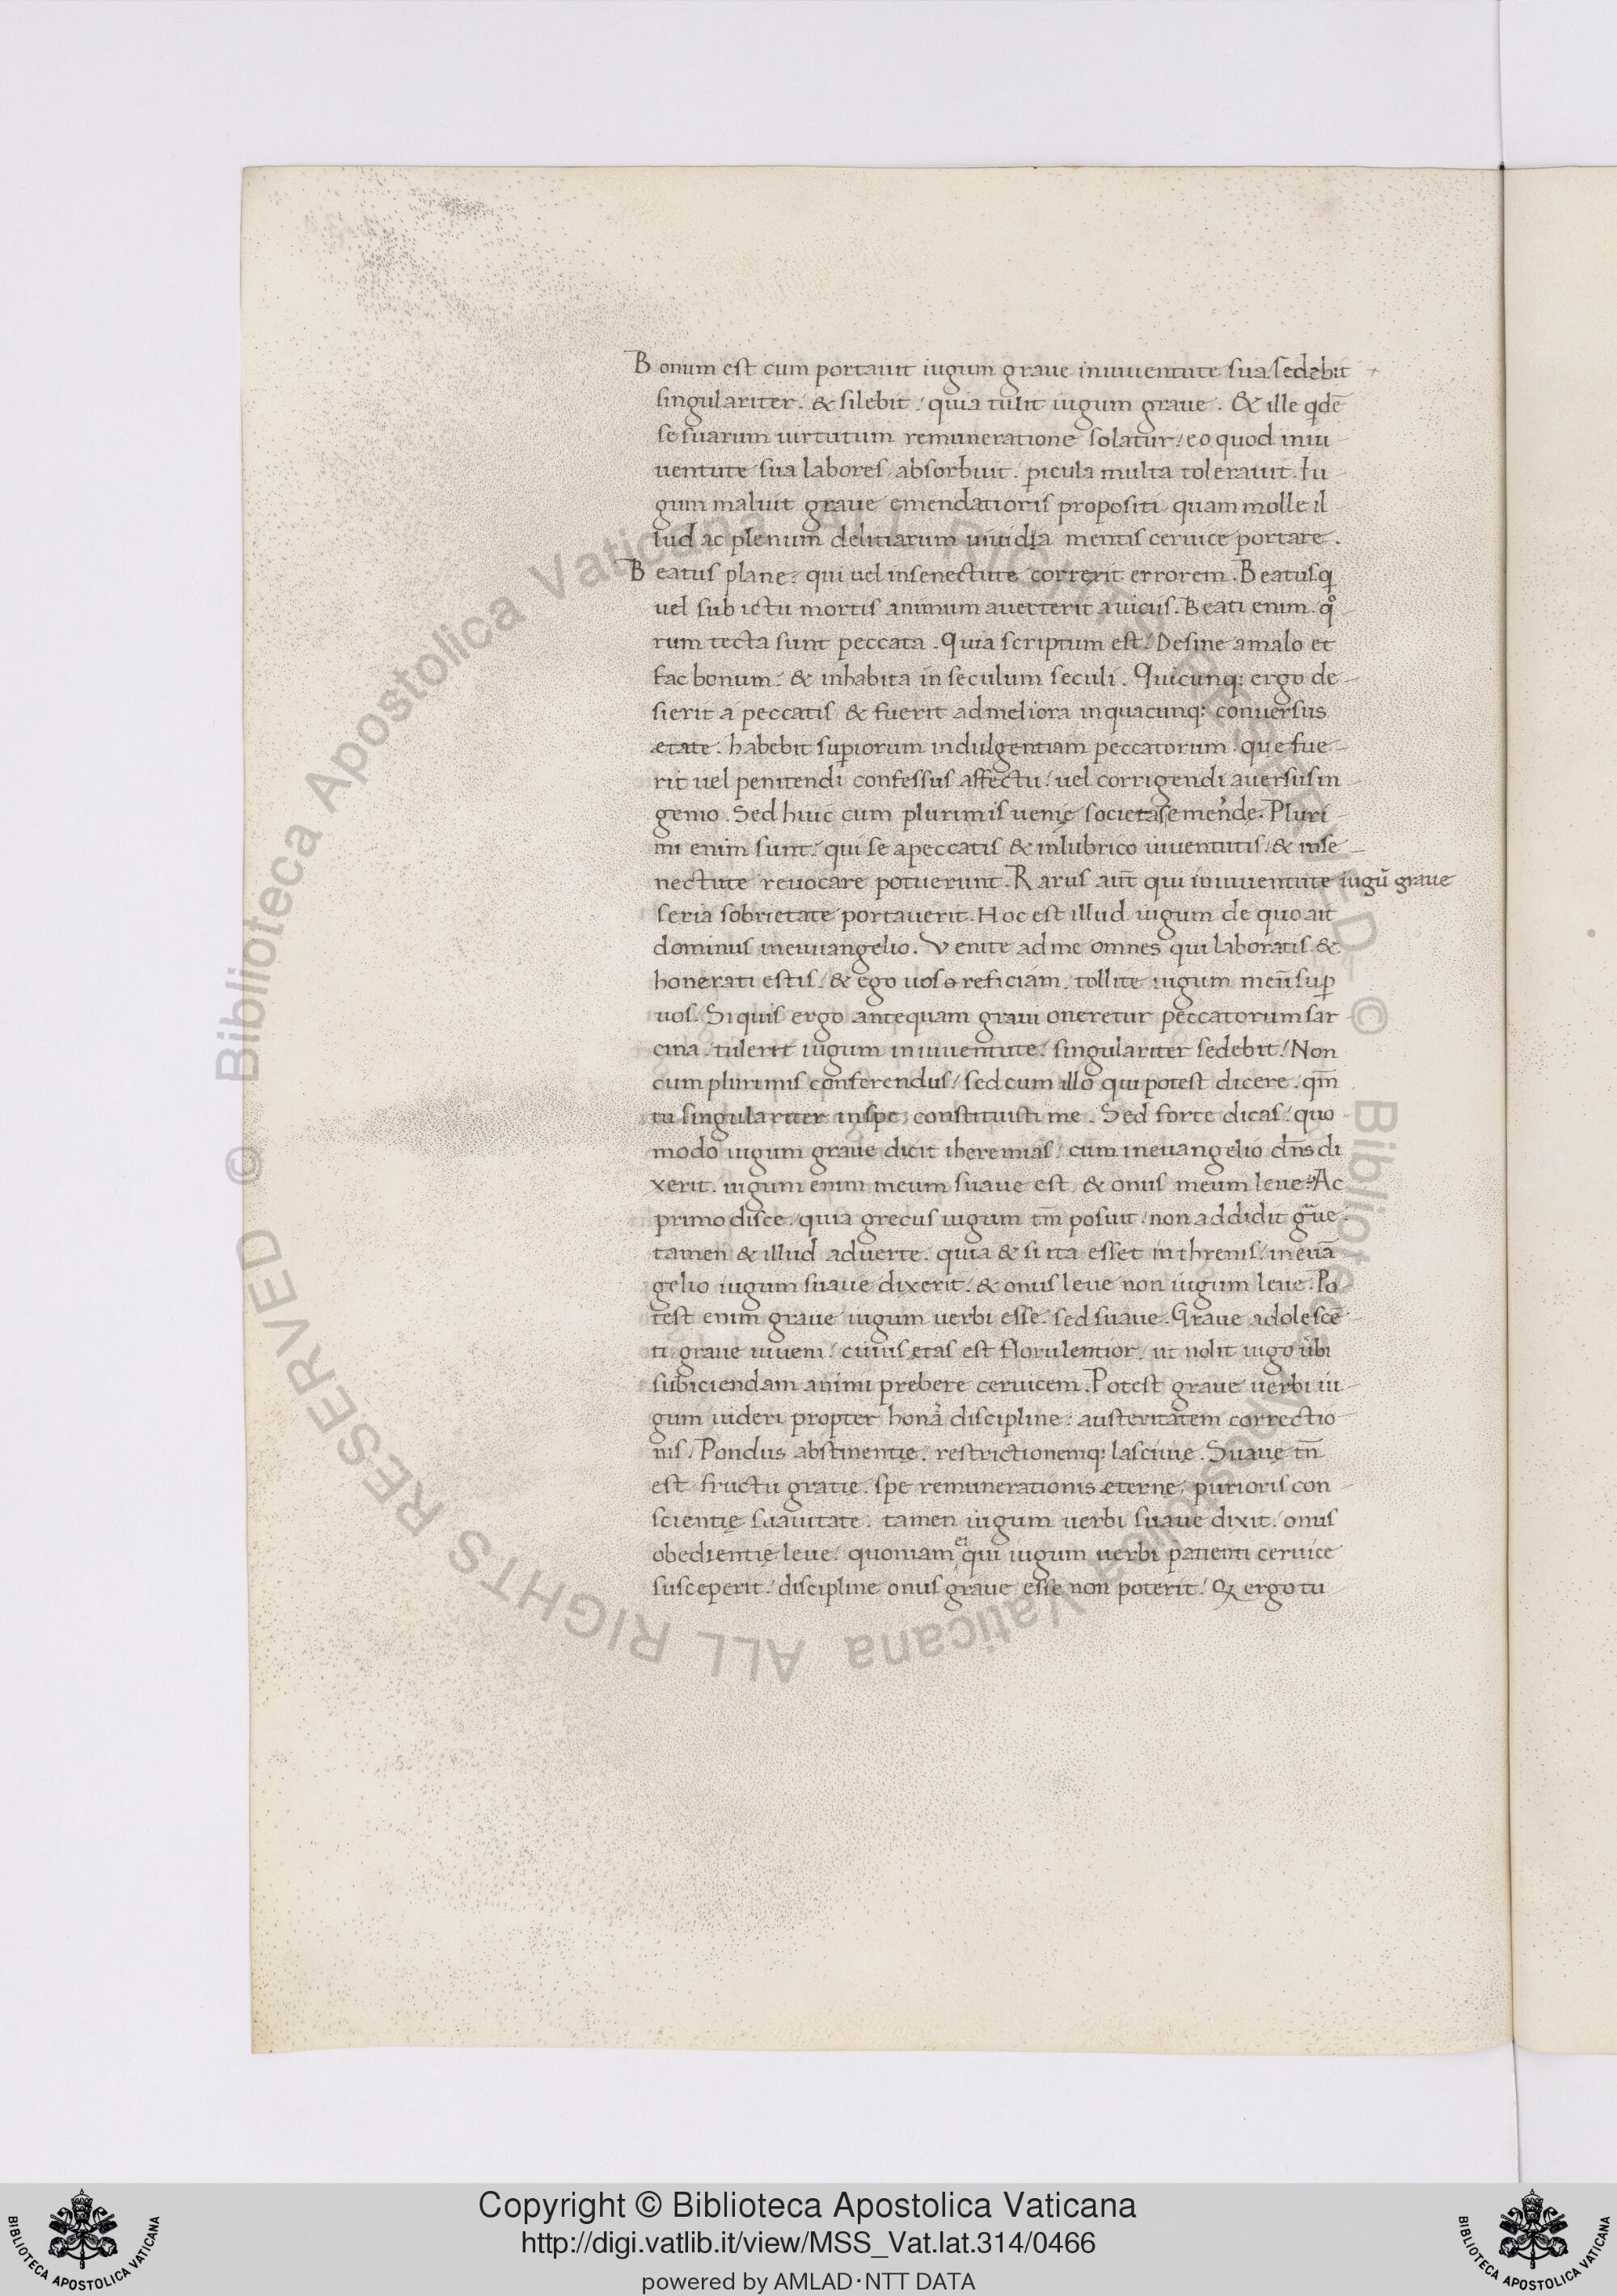 Bonum est cum portauit iugum graue in iuuentute sua. sedebit
singulariter. & silebit. quia tulit iugum graue. & ille qidē
se suarum uirtutum remuneratione solatur. eo quod in iu-
uentute sua labores absorbuit. picula multa tolerauit. Iu-
gum maluit graue emendatioris propositi quam molle il-
lud ac plenum delitiarum mentis ceruice portare.
Beatus plane. qui uel in senectute correrit errorem. Beatus q
uel sub ictu mortis animum auerterit a uicus. Beati enim. qo-
rum tecta sunt peccata. Quia scriptum est. Desine a malo et
fac bonum. & inhabita in seculum seculi. Quicunq; ergo de-
sierit a peccatis & fuerit ad meliora in quacunq; conuersus
etate. habebit supiorum indulgentiam peccatorum. que fue-
rit uel penitendi confessus affectu. uel corrigendi auersus in-
genio. Sed huic cum plurimis uenię societas Pluri-
mi enim sunt. qui se a peccatis & in lubrico iuuentutis. & in se-
nectute reuocare potuerunt. Rarus aut̄ qui in iuuentute iugū graue
seria sobrietate portauerit. Hoc est illud iugum de quo ait
dominus in euuangelio. Venite ad me omnes qui laboratis &
honerati estis. & ego uos reficiam. tollite iugum meū sup
uos. Si quis ergo antequam graui oneretur peccatorum sar
cina. tulerit iugum in iuuentute. singulariter sedebit. Non
cum plurimis conferendus. sed cum illo qui potest dicere. qm̄
tu singulariter in spe constituisti me. Sed forte dicas. quo-
modo iugum graue dicit iheremias. cum in euangelio dn̄s di
xerit. iugum enim meum suaue est & onus meum leue. Ac
primo disce. quia grecus iugum tm̄ posuit. non addidit gaue.
tamen & illud aduerte. quia & si ita esset in threnis. in euā-
gelio iugum suaue dixerit. & onus leue non iugum leue. Po
test enim graue iugum uerbi esse. sed suaue. Graue adolescē-
ti. graue iuueni. cuius etas est florulentior. ut nolit iugo ubi
subiciendam animi prebere ceruicem. Potest graue uerbi iu-
gum uideri propter discipline. austeritatem correctio
nis. Pondus abstinentię. restrictionemq; lasciuię. Suaue tn̄
est fructu gratię. spe remunerationis eternę. purioris con-
scientię suauitate. tamen iugum uerbi suaue dixit. onus
obedientię leue. quoniam ei qui iugum uerbi patienti ceruice
susceperit. discipline onus graue esse non poterit. ergo tu
Copyright © Biblioteca Apostolica Vaticana
http://digi.vatlib.it/view/MSS_Vat.lat.314/0466
powered by AMLAD·NTT DATA
BIBLIOTECA APOSTOLICA VATICANA
BIBLIOTECA APOSTOLICA VATICANA
© Biblioteca Apostolica Vaticana ALL RIGHTS RESERVED © Biblioteca Apostolica Vaticana ALL RIGHTS RESERVED